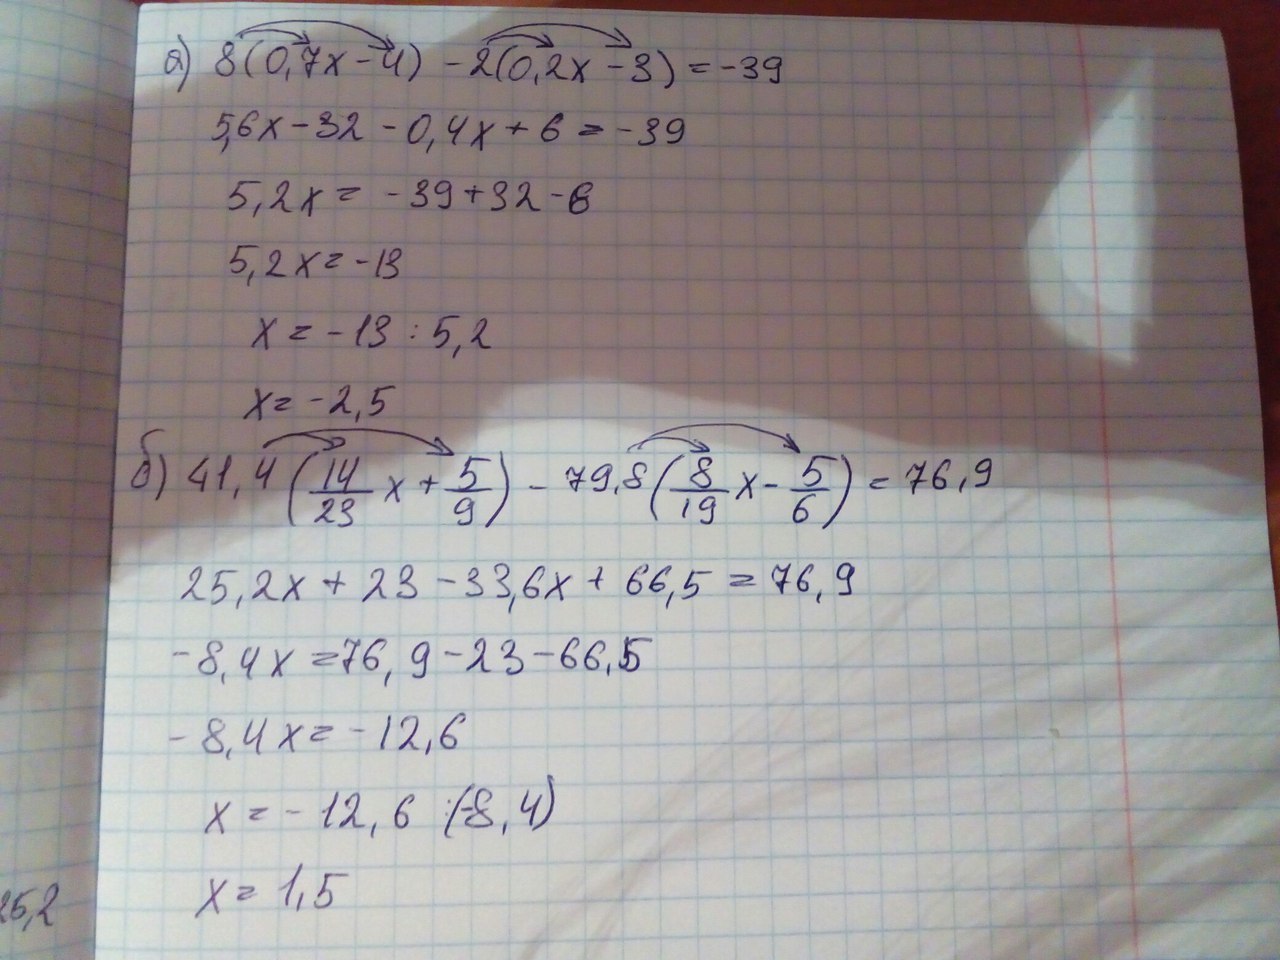 а) 8(0,7x-4) -2(0,2x-3)=-39
5,6x-32-0,4x+6=-39
5,2x=-39+32-6
5,2x=-13
x=-13:5,2
x=-2,5
б) 41,4(14/23 x+5/9)-79,8(8/19 x-5/6)=76,9
25,2x+23-33,6x+66,5=76,9
-8,4x=76,9-23-66,5
-8,4x=-12,6
x=-12,6:(-8,4)
x=1,5